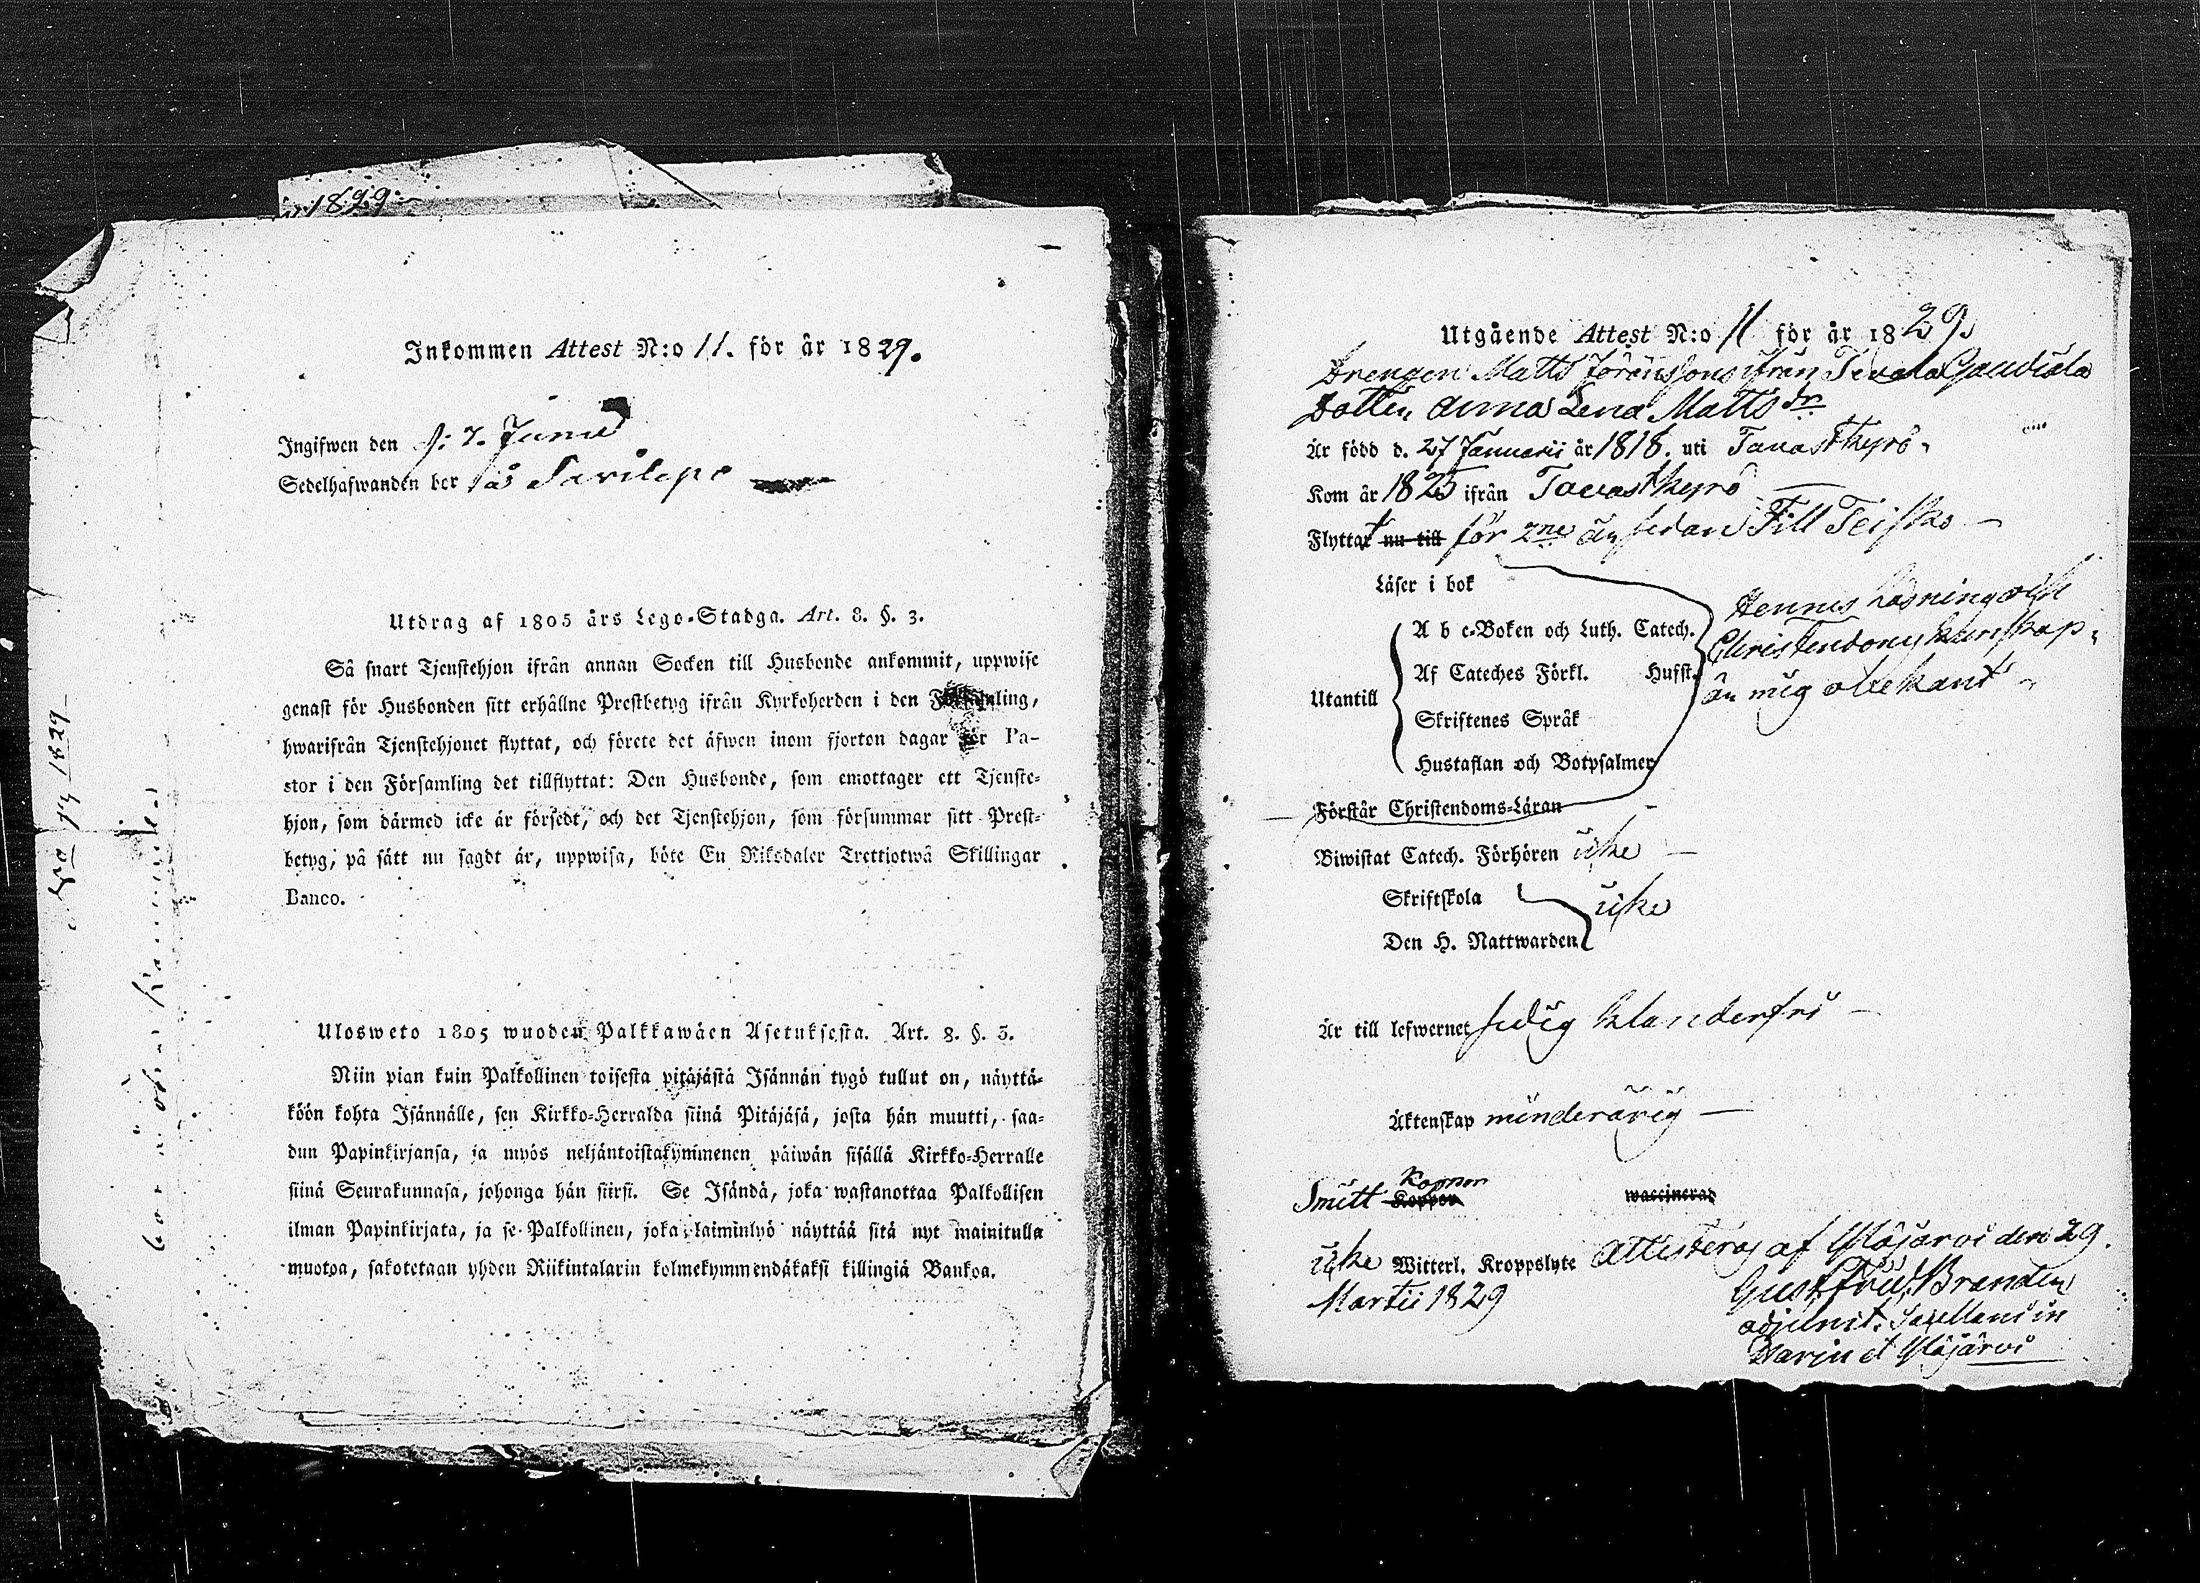 1829
Inkommen Attest N:o 11. för år 1829.
Ingifwen den d: 7. Junii
Sedelhafwanden bor på Savilepo
Utdrag af 1805 års Lego-Stadga. Art. 8. §. 3.
Så snart Tjenstehjon ifrån annan Socken till Husbonde ankommit, uppwise
genast för Husbonden sitt erhållne Prestbetyg ifrån Kyrkoherden i den Församling,
hwarifrån Tjenstehjonet flyttat, och förete det äfwen inom fjorton dagar för Pa-
stor i den Församling det tillflyttat: Den Husbonde, som emottager ett Tjenste-
hjon, som därmed icke är försedt, och det Tjenstehjon, som försummar sitt Prest-
betyg, på sätt nu sagdt är, uppwisa, böte En Riksdaler Trettjotwå Skillingar
Banco.
Ulosweto 1805 wuoden Palkkawäen Asetuksesta. Art. 8. §. 3.
Niin pian kuin Palkollinen toisesta pitäjästä Isännän tygö tullut on, näyttä-
köön kohta Isännälle, sen Kirkko-Herralda siinä Pitäjäsä, josta hän muutti, saa-
dun Papinkirjansa, ja myös neljäntoistakymmenen päiwän sisällä Kirkko-Herralle
siinä Seurakunnasa, johonga hän siirsi. Se Isändä, joka wastanottaa Palkollisen
ilman Papinkirjata, ja se Palkollinen, joka laiminlyö näyttää sitä nyt mainitulla
muotoa, sakotetaan yhden Riikintalarin kolmekymmendäkaksi killingiä Bankoa.
1829
Utgående Attest N:o 11 för år 1829.
Drengen Matts Göransons ifrån
Dotter Anna Lena Matts dr
Är född d. 27 Januarii år 1818. uti Tavastkyrö.
Kom år 1825 ifrån Tavastkyrö
Flyttat nu till för 2ne år sedan Till Teisko
Läser i bok
Hennes läsning och
A b c-Boken och Luth. Catech.
Christendoms kunskap
Af Cateches Förkl. Husst.
är mig obekant
Utantill
Skriftenes Språk
Hustaflan och Botpsalmer
Förstår Christendoms-Läran
Biwistat Catech. Förhören icke
Skriftskola
icke
Den H. Nattwarden
Är till lefwernet sedig klanderfri
Äktenskap minderårig
Koppor
Smitt Koppor waccinerad
icke Witterl. Kroppslyte Attesteras af Ylöjärvi den 29.
Martii 1829
Gust. Fred. Brander
adjunct. Sacellani in
Ylöjärvi